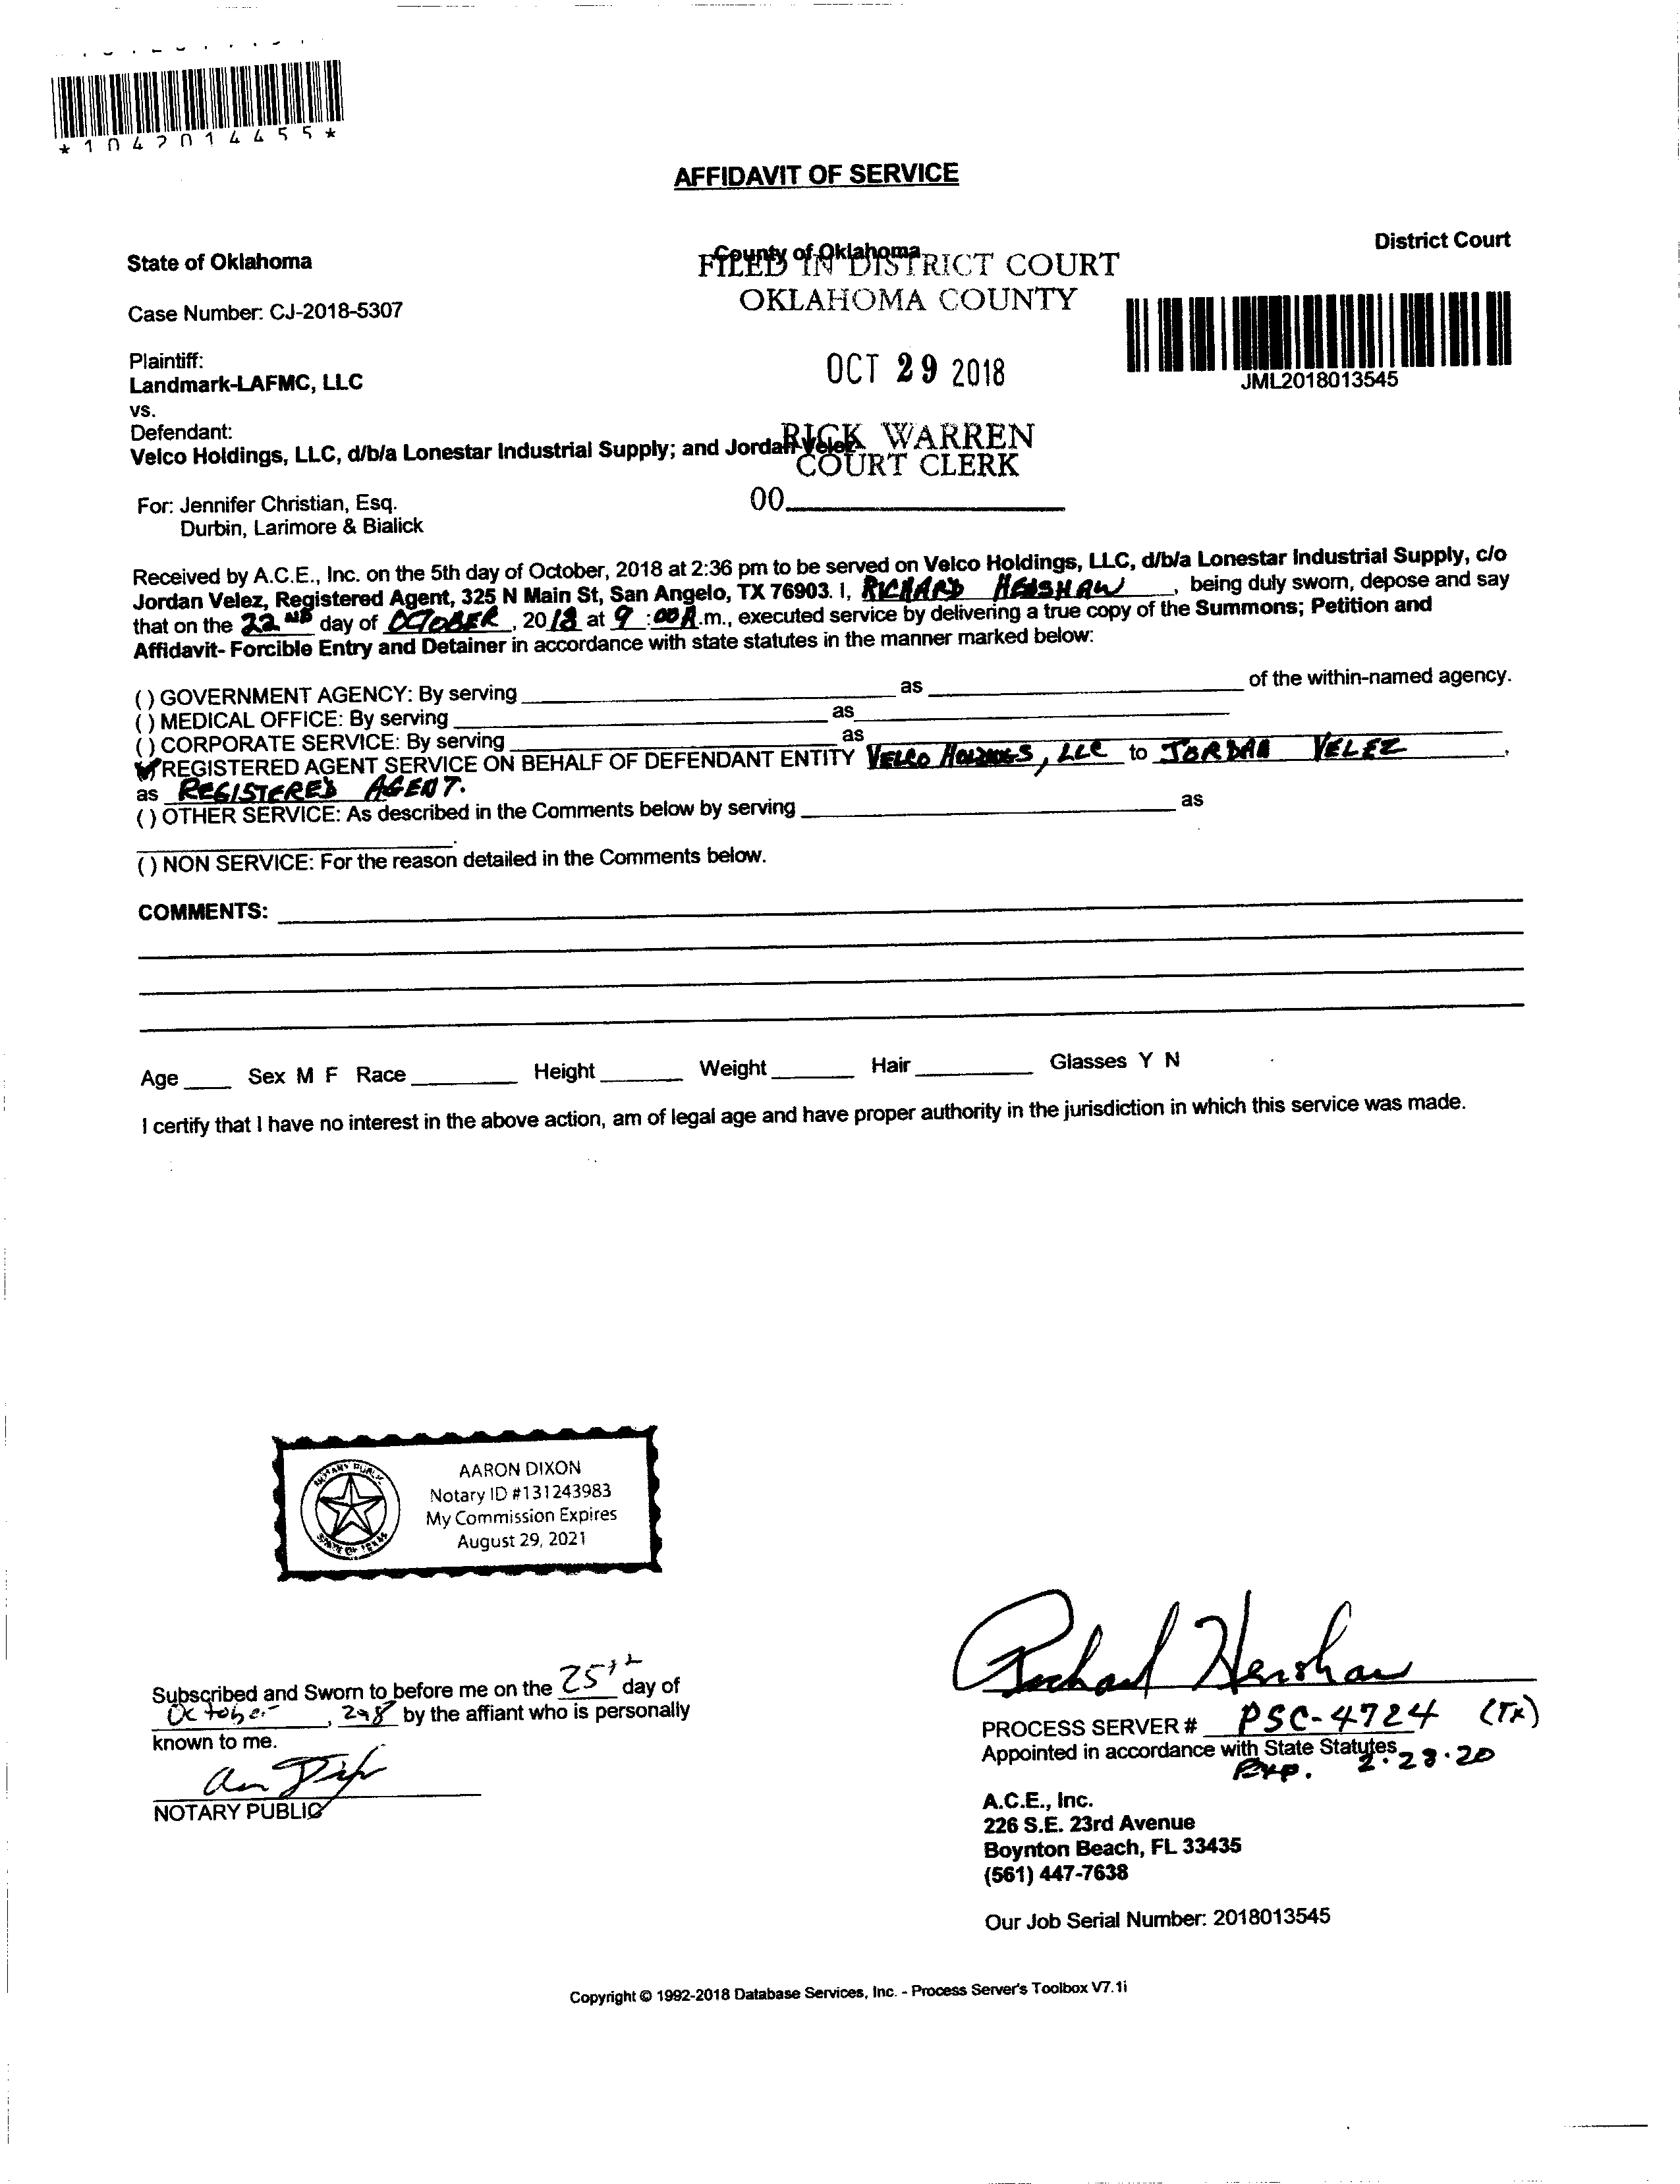 *1042014455*
AFFIDAVIT OF SERVICE
State of Oklahoma
County of Oklahoma
District Court
FILED IN DISTRICT COURT
OKLAHOMA COUNTY
Case Number: CJ-2018-5307
OCT 29 2018
JML2018013545
Plaintiff:
Landmark-LAFMC, LLC
vs.
Defendant:
Velco Holdings, LLC, d/b/a Lonestar Industrial Supply; and Jordan Velez
RICK WARREN
COURT CLERK
00
For: Jennifer Christian, Esq.
Durbin, Larimore & Bialick
Received by A.C.E., Inc. on the 5th day of October, 2018 at 2:36 pm to be served on Velco Holdings, LLC, d/b/a Lonestar Industrial Supply, c/o
Jordan Velez, Registered Agent, 325 N Main St, San Angelo, TX 76903. I, RICHARD HENSHAW, being duly sworn, depose and say
that on the 22ND day of OCTOBER, 2018 at 9:00A.m., executed service by delivering a true copy of the Summons; Petition and
Affidavit- Forcible Entry and Detainer in accordance with state statutes in the manner marked below:
( ) GOVERNMENT AGENCY: By serving as of the within-named agency.
( ) MEDICAL OFFICE: By serving as
( ) CORPORATE SERVICE: By serving as
(✓) REGISTERED AGENT SERVICE ON BEHALF OF DEFENDANT ENTITY VELCO HOLDINGS, LLC to JORDAN VELEZ,
as REGISTERED AGENT.
( ) OTHER SERVICE: As described in the Comments below by serving as
.
( ) NON SERVICE: For the reason detailed in the Comments below.
COMMENTS:
Age Sex M F Race Height Weight Hair Glasses Y N
I certify that I have no interest in the above action, am of legal age and have proper authority in the jurisdiction in which this service was made.
NOTARY PUBLIC
STATE OF TEXAS
AARON DIXON
Notary ID #131243983
My Commission Expires
August 29, 2021
Subscribed and Sworn to before me on the 25th day of
October, 2018 by the affiant who is personally
known to me.
NOTARY PUBLIC
Richard Henshaw
PROCESS SERVER # PSC-4724 (TX)
Appointed in accordance with State Statutes
Exp. 2.28.20
A.C.E., Inc.
226 S.E. 23rd Avenue
Boynton Beach, FL 33435
(561) 447-7638
Our Job Serial Number: 2018013545
Copyright © 1992-2018 Database Services, Inc. - Process Server's Toolbox V7.1i